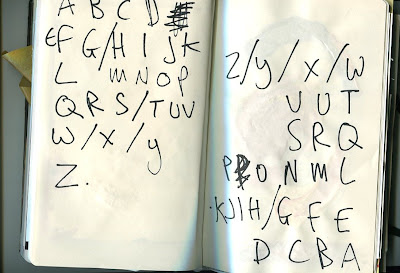 A B C D
EF G/H I J K
L M N O P
Q R S/T U V
W/X/y
Z.
Z/y/x/W
V U T
S R Q
P O N M L
KJIH/G F E
D C B A